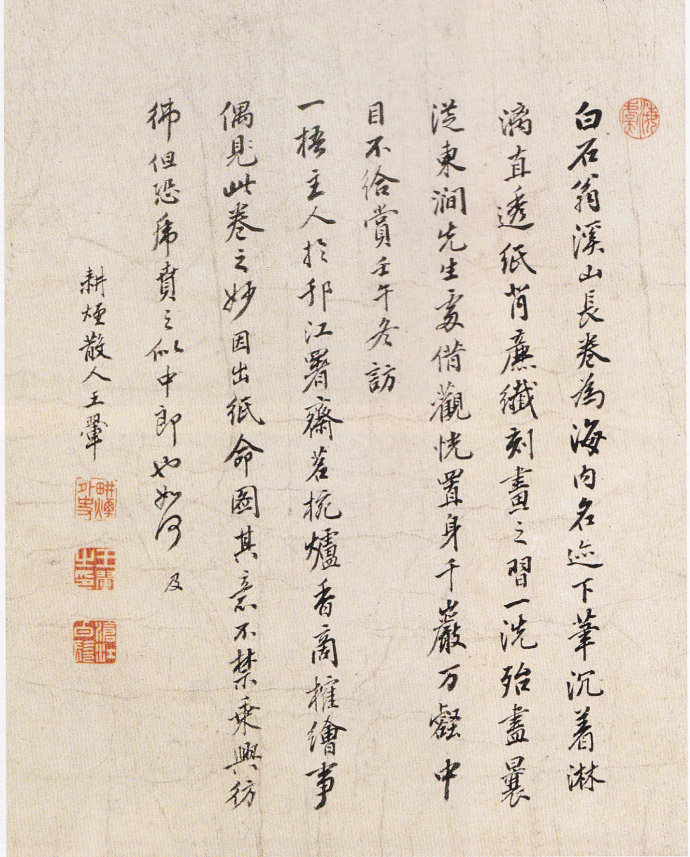 白石翁溪山長卷為海内名迹下筆沉着淋
漓直透紙背廉纖刻畫之習一洗殆盡曩
從東澗先生處借觀恍置身千巖万壑中
目不給賞壬午冬訪
一梧主人於邗江署齋茗椀爐香商榷繪事
偶見此卷之妙因出紙命圖其意不禁乘興彷
彿但恐虎賁之似中郎也如何 及
耕煙散人王翬